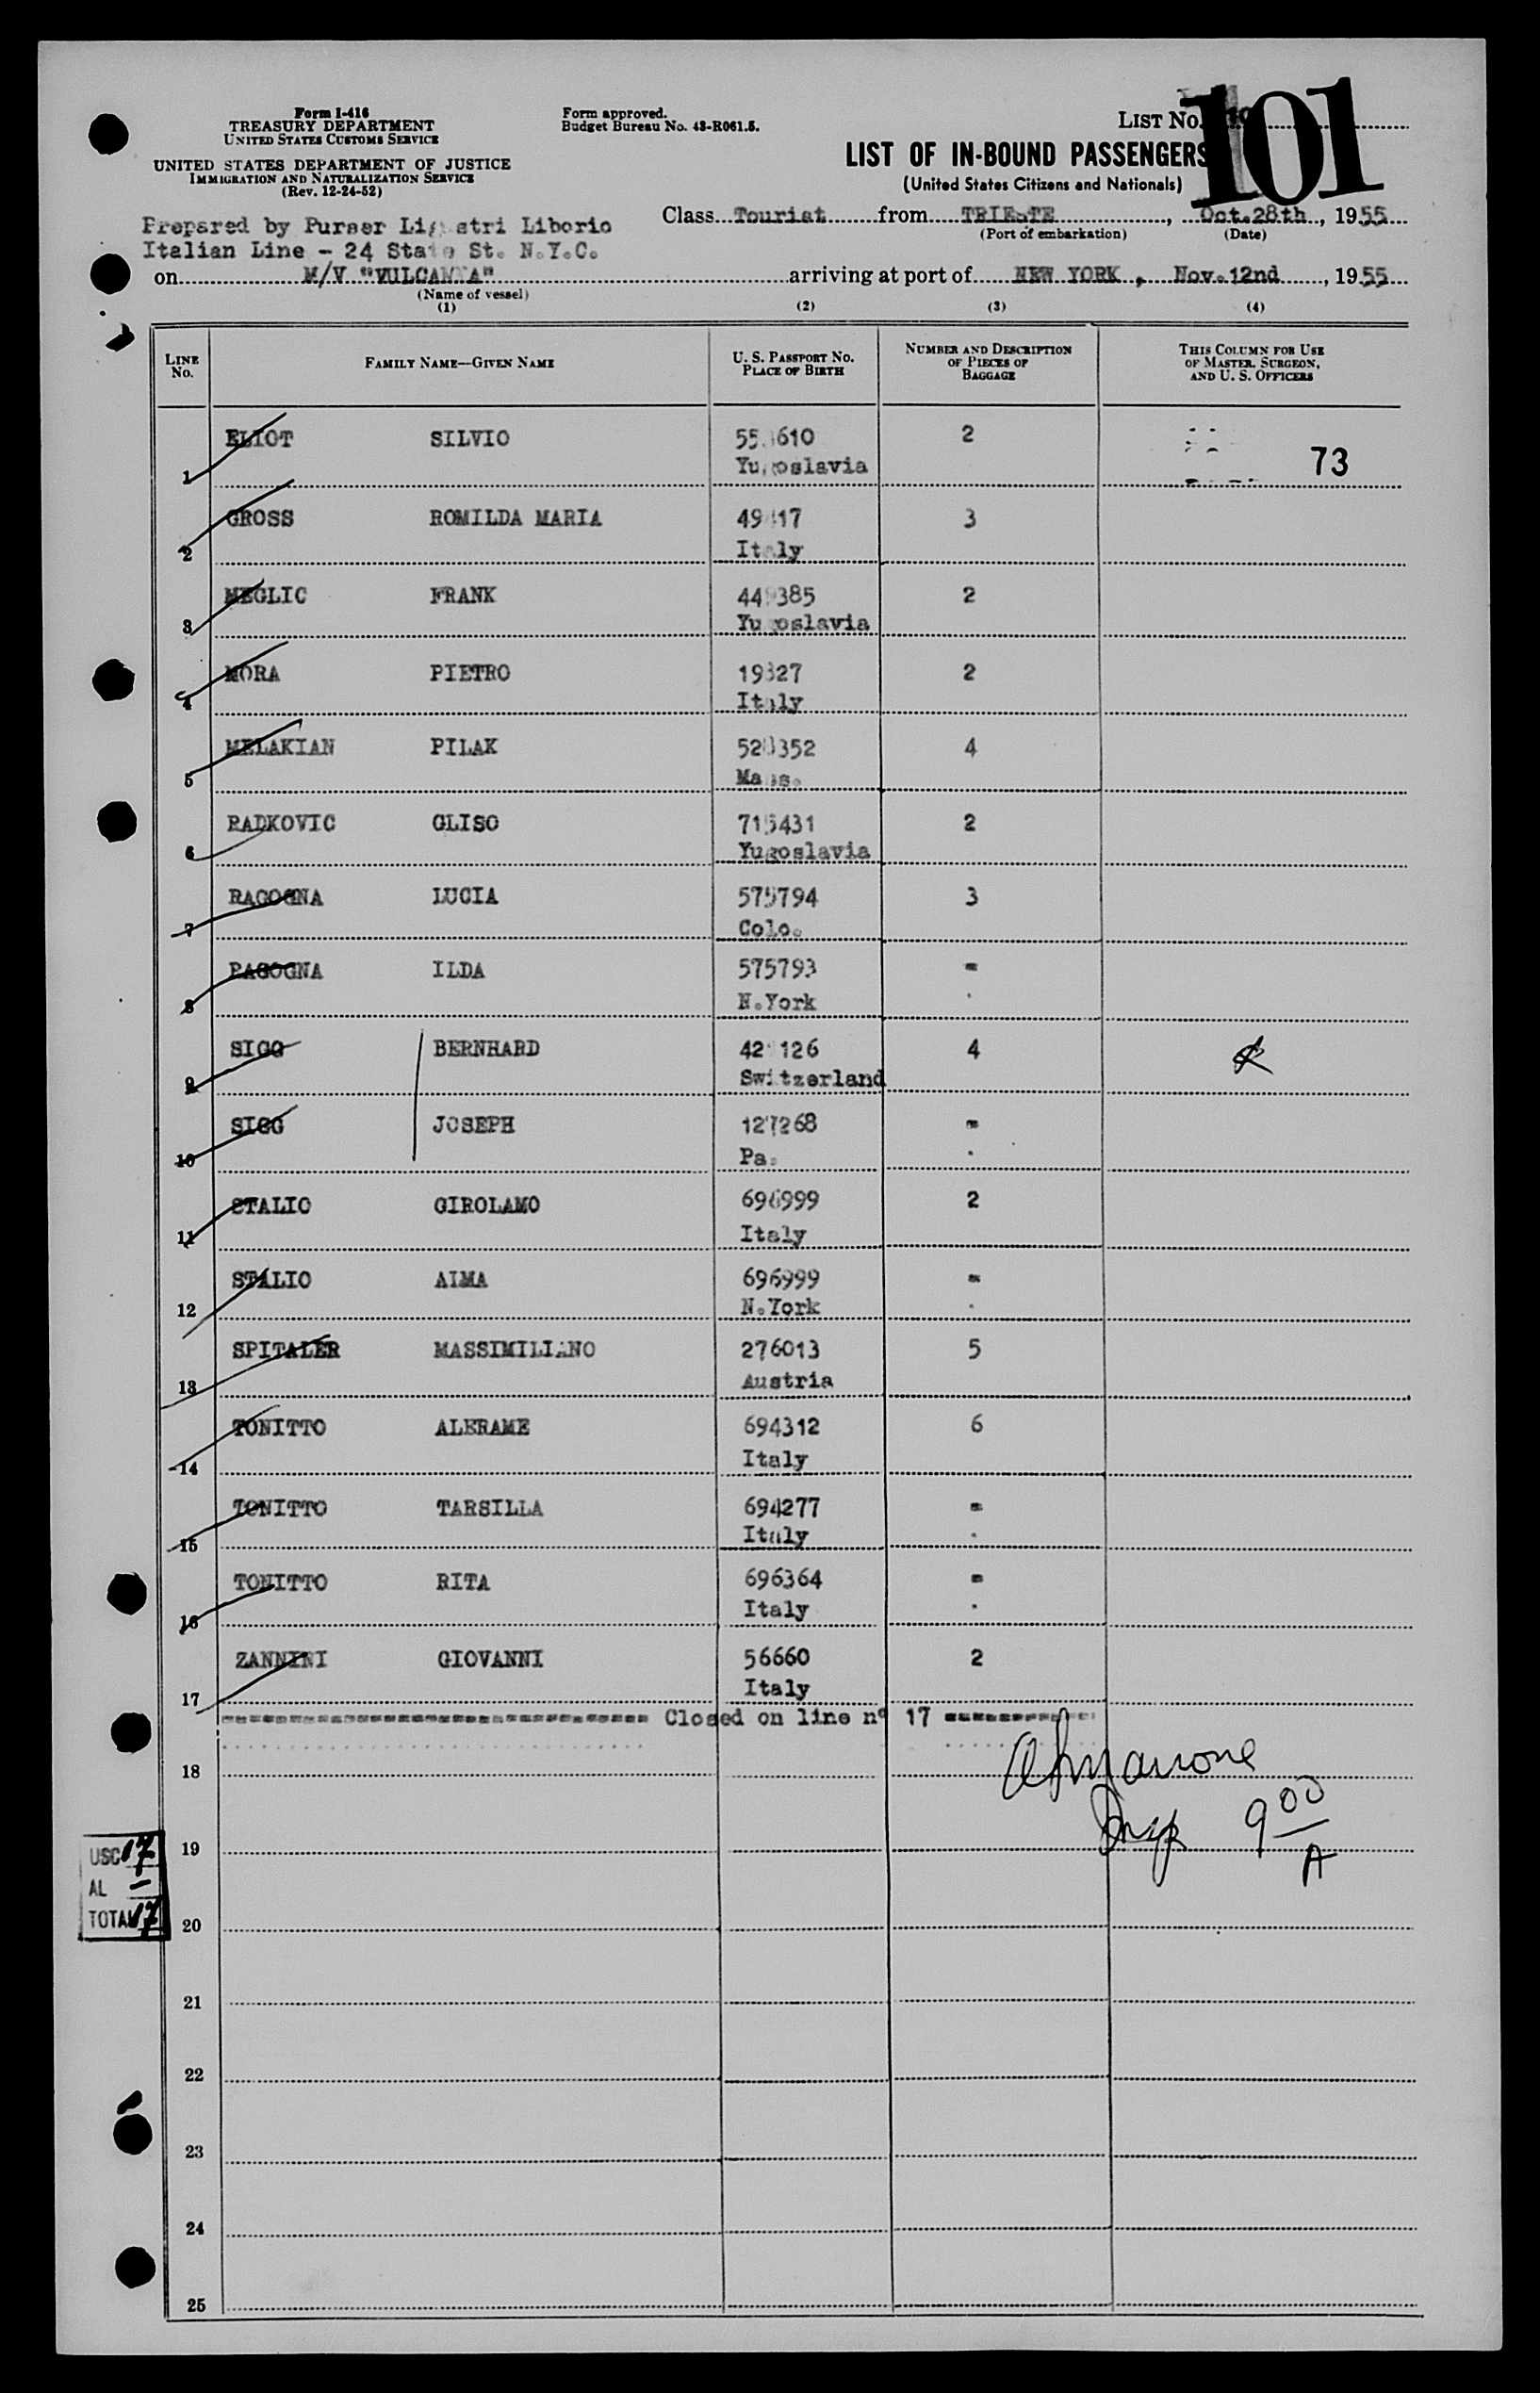 Form I-416
TREASURY DEPARTMENT
UNITED STATES CUSTOMS SERVICE
UNITED STATES DEPARTMENT OF JUSTICE
IMMIGRATION AND NATURALIZATION SERVICE
(Rev. 12-24-52)
Form approved.
Budget Bureau No. 43-R061.5.
LIST NO.
101
LIST OF IN-BOUND PASSENGERS
(United States Citizens and Nationals)
Prepared by Purser Liborio
Italian Line - 24 State St. N.Y.C.
Class Tourist from TRIESTE, Oct.28th, 1955
(Port of embarkation) (Date)
on M/V "VULCANIA" arriving at port of NEW YORK, Nov.12nd, 1955
(Name of vessel)
(1) (2) (3) (4)
LINE NO. FAMILY NAME—GIVEN NAME U. S. PASSPORT NO. PLACE OF BIRTH NUMBER AND DESCRIPTION OF PIECES OF BAGGAGE THIS COLUMN FOR USE OF MASTER, SURGEON, AND U. S. OFFICERS
ELIOT SILVIO 2
1 Yugoslavia 73
GROSS ROMILDA MARIA 3
2 Italy
MEGLIC FRANK 449385 2
3 Yugoslavia
MORA PIETRO 19327 2
4 Italy
MELAKIAN PILAK 4
5 Mass.
RADKOVIC GLISO 715431 2
6 Yugoslavia
RAGOGNA LUCIA 575794 3
7 Colo.
RAGOGNA ILDA 575793 =
8 N.York
SIGG BERNHARD 4
9 Switzerland
SIGG JOSEPH 127268 =
10 Pa.
STALIO GIROLAMO 696999 2
11 Italy
STALIO AIMA 696999 =
12 N.York
SPITALER MASSIMILIANO 276013 5
13 Austria
TONITTO ALERAME 694312 6
14 Italy
TONITTO TARSILLA 694277 =
15 Italy
TONITTO RITA 696364 =
16 Italy
ZANNINI GIOVANNI 56660 2
17 Italy
Closed on line nº 17
18
Insp 9 00
A
19
USC 17
AL —
TOTAL 17
20
21
22
23
24
25